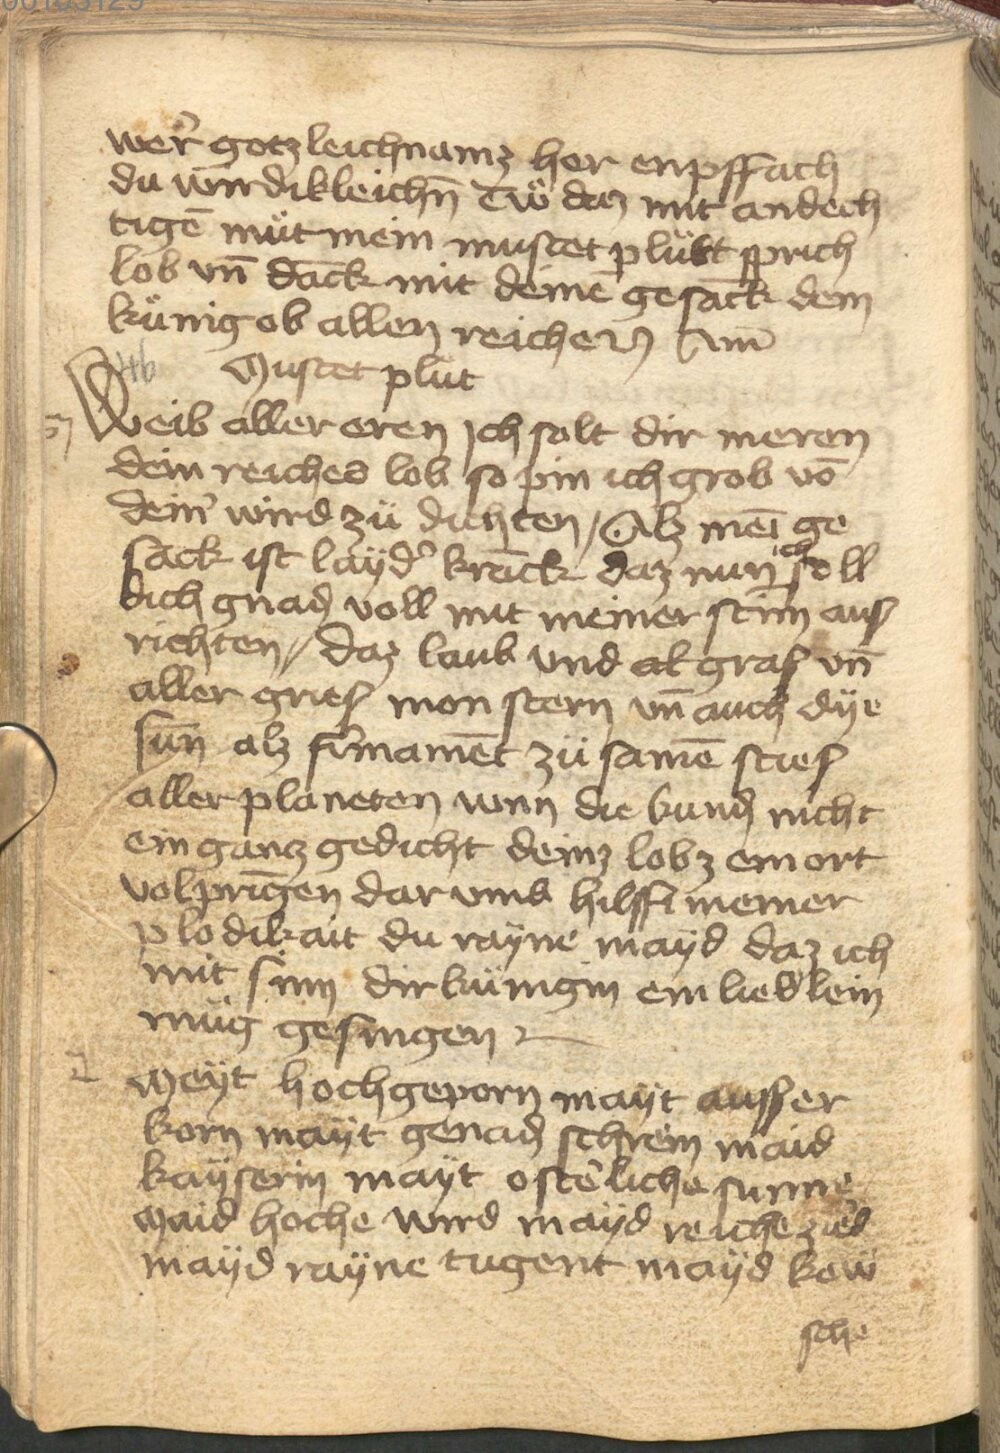 00105129
wer̉ gotz leichnamz her enpffach
du wirdikleichn̄ Tw̎ daz mit andech
tigē müt mein muscet plüet sprich
lob vn̄ dāck mit deinē gesāck dem
künig ob allen reichen Am̄
46
Muscet plüt
Weib aller eren Ich solt dir meren
dein reiches lob so pin ich grob vō
dein̉ wird zü dichten / Alz meī ge
sāck ist layd̉ krāck daz nun ich soll
dich gnad voll mit meiner stim auſ
richten / Daz laub vnd al graſ vn̄
aller grieſ mon stern vn̄ auch dÿe
sūn alz firmamēt zü samē stieſ
aller planeten wnn die kund nicht
ein gancz gedicht deinz lobz ein ort
volpringen dar vmb hilff meiner
plödikait du rayne mayd daz ich
mit sinn dir künigin ein liedlein
müg gesingen
Meyt hochgeporn mayt ausser
korn mayt genad schrein maid
kayserin mayt ostērliche sunne
Maid hoche wird mayd reiche zied
mayd rayne tugent mayd kew
sche